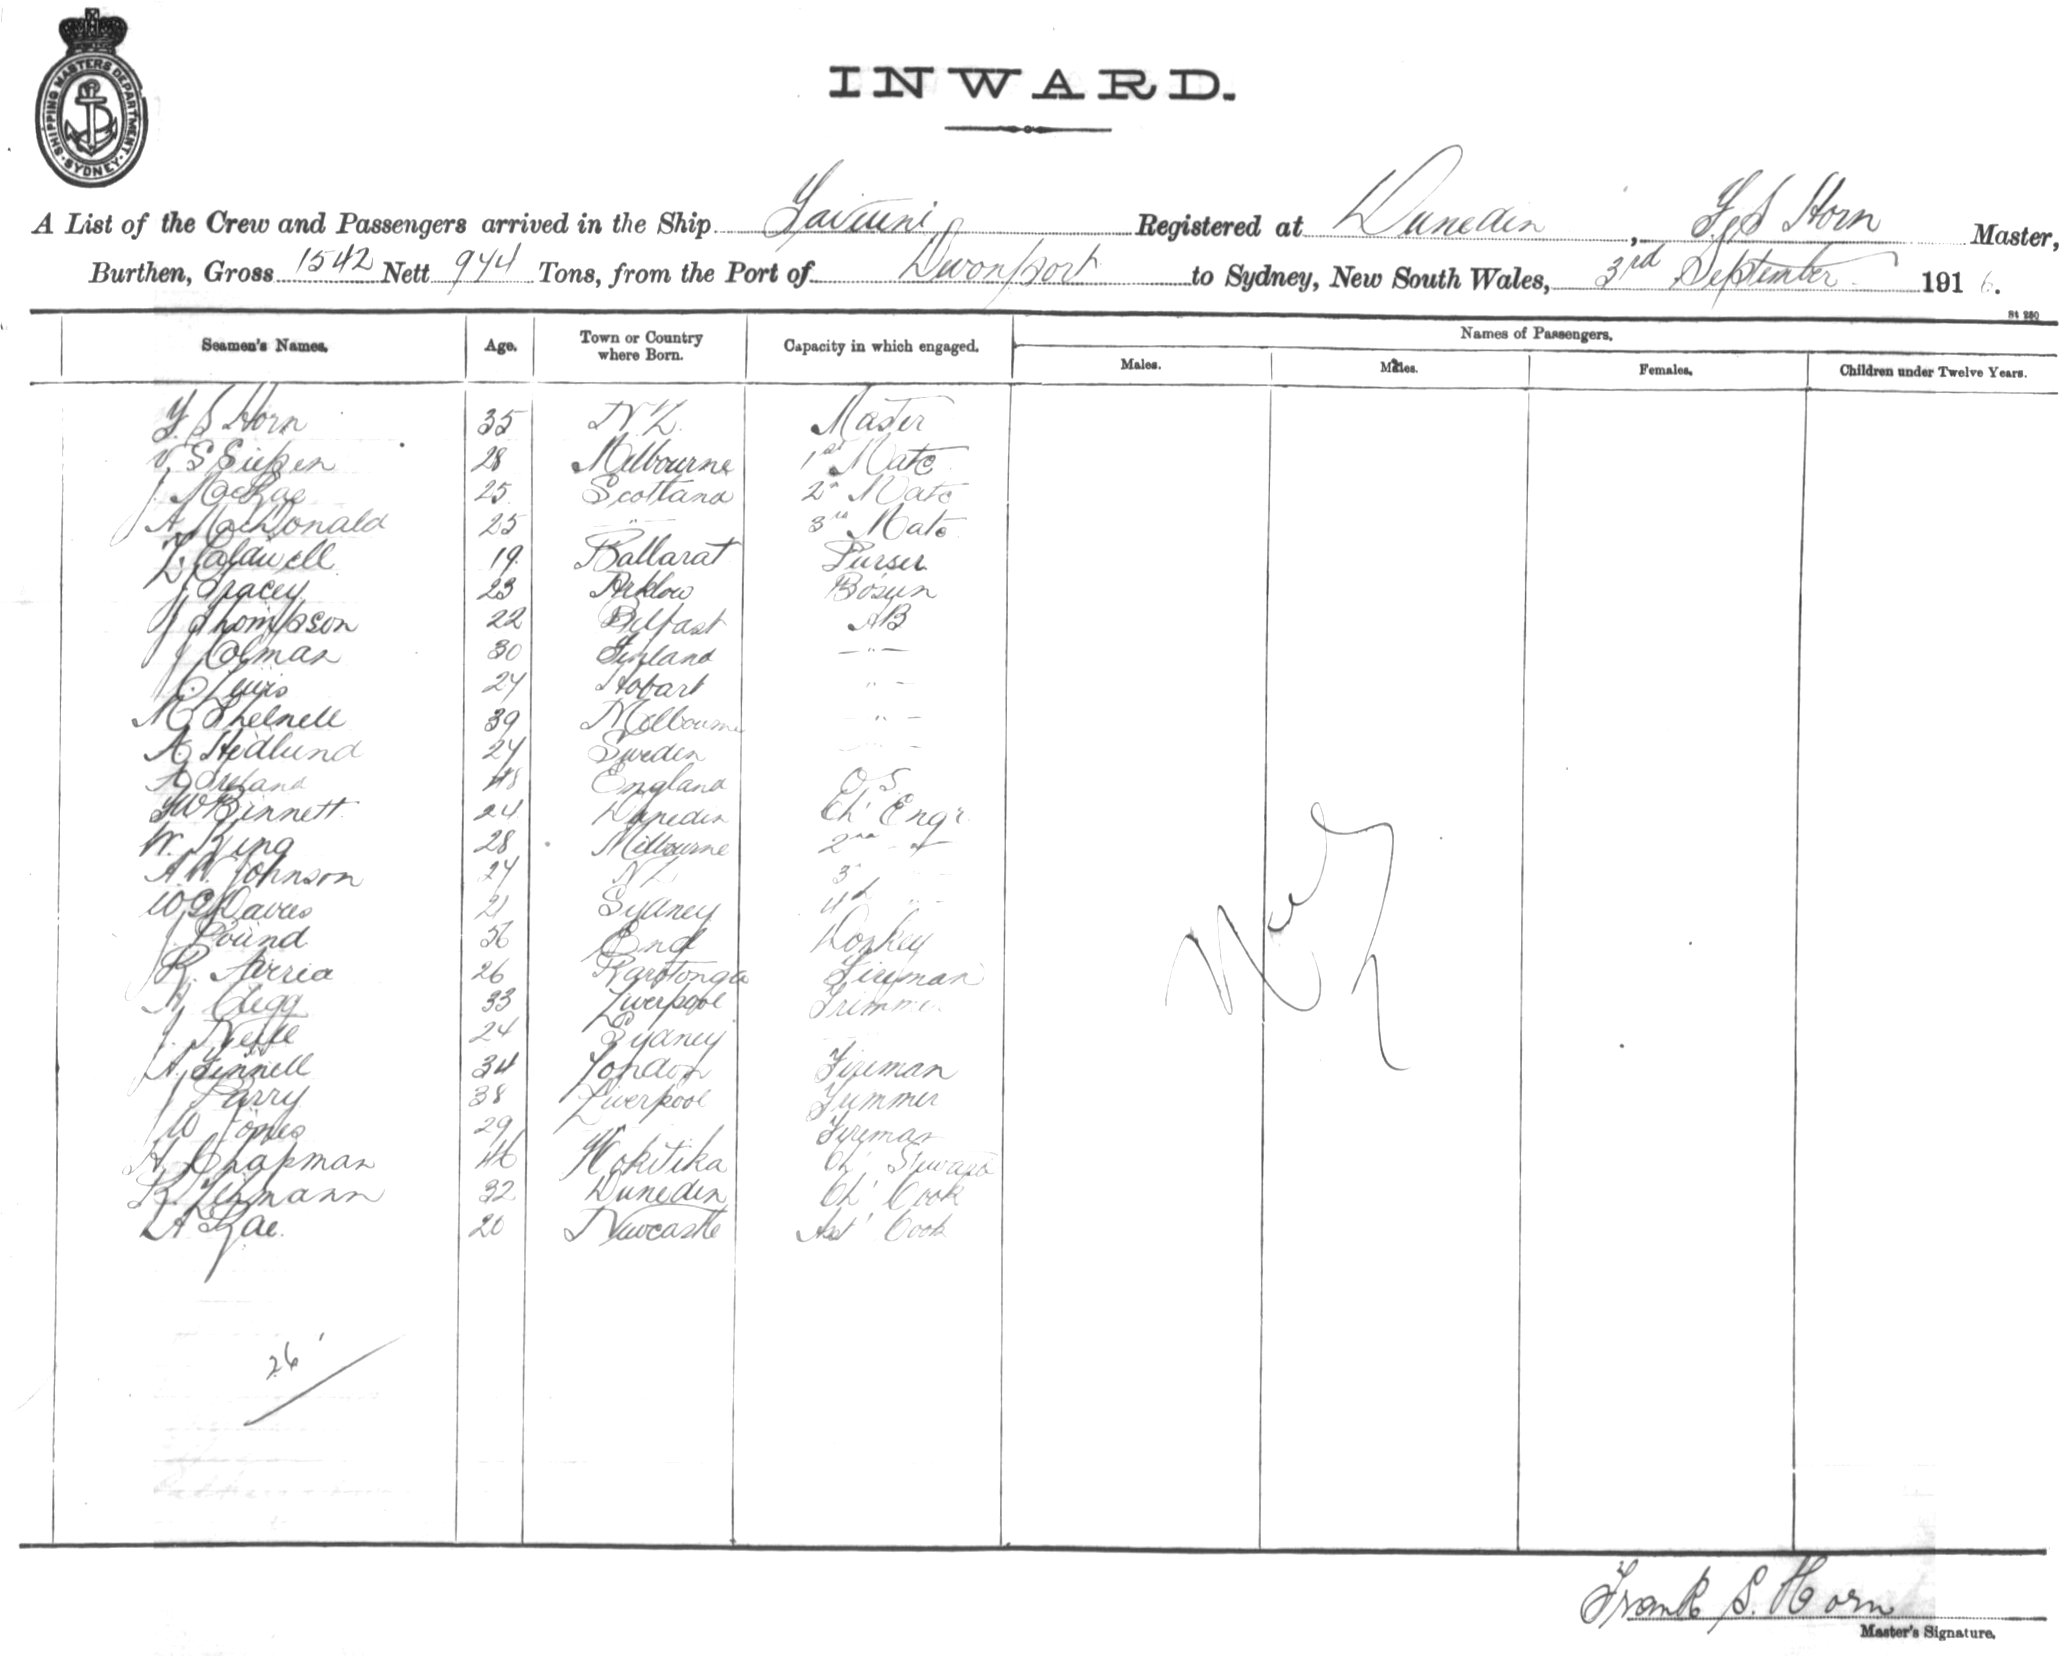 SHIPPING MASTERS DEPARTMENT SYDNEY
INWARD.
A List of the Crew and Passengers arrived in the Ship Taviuni Registered at Dunedin, F. S Horn Master,
Burthen, Gross 1542 Nett 944 Tons, from the Port of Devonport to Sydney, New South Wales, 3rd September 1916.
St 280
Seamen's Names. Age. Town or Country where Born. Capacity in which engaged. Names of Passengers.
Males. Males. Females. Children under Twelve Years.
F. S Horn 35 N.Z. Master
V. S 28 Melbourne 1st Mate
J. MacRae 25 Scotland 2nd Mate
A. MacDonald 25 -"- 3rd Mate
Caldwell 19 Ballarat Purser
J Tracey 23 Arklow Bosun
J Thompson 22 Belfast AB
J Colman 30 Finland -"-
C. Lewis 24 Hobart "-
M. 39 Melbourne -"-
A. Hedlund 24 Sweden
A Ireland 48 England O.S.
Bennett 24 Dunedin Ch' Engr
W. King 28 Melbourne 2nd
A. W. Johnson 24 NZ 3rd
W Davies 21 Sydney 4th "
J. Pound 56 Eng Donkey
R. 26 Rarotonga Fireman
A. Clegg 33 Liverpool Trimmer
J. 24 Sydney
A. Finnell 34 London Fireman
J Parry 38 Liverpool Trimmer
W Jones 29 " Fireman
H. Chapman 46 Hokitika Ch' Steward
R. Lehmann 32 Dunedin Ch' Cook
A Rae. 20 Newcastle Asst Cook
26
Frank S. Horn
Master's Signature.